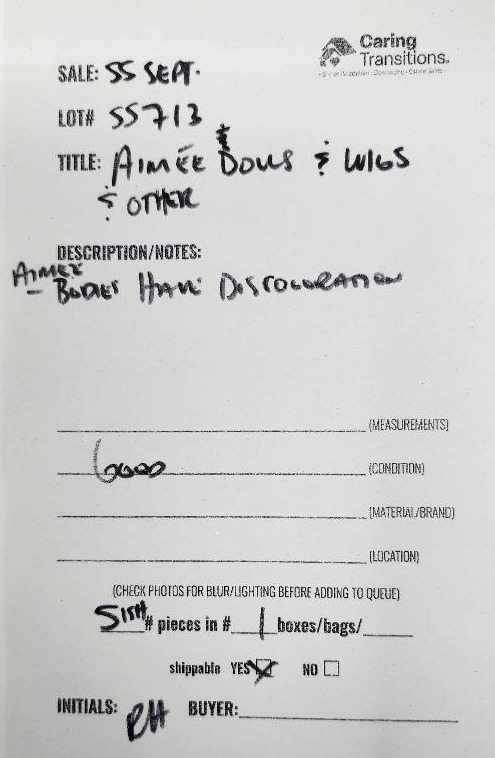 Caring
Transitions®
SALE: SS SEPT.
LOT# SS713
TITLE: AIMÉE DOLLS & WIGS
& OTHER
DESCRIPTION/NOTES:
AIMEE
- BODIES HAVE DISCOLORATION
(MEASUREMENTS)
GOOD (CONDITION)
(MATERIAL/BRAND)
(LOCATION)
(CHECK PHOTOS FOR BLUR/LIGHTING BEFORE ADDING TO QUEUE)
# pieces in # 1 boxes/bags/
shippable YES NO
INITIALS: RH BUYER: